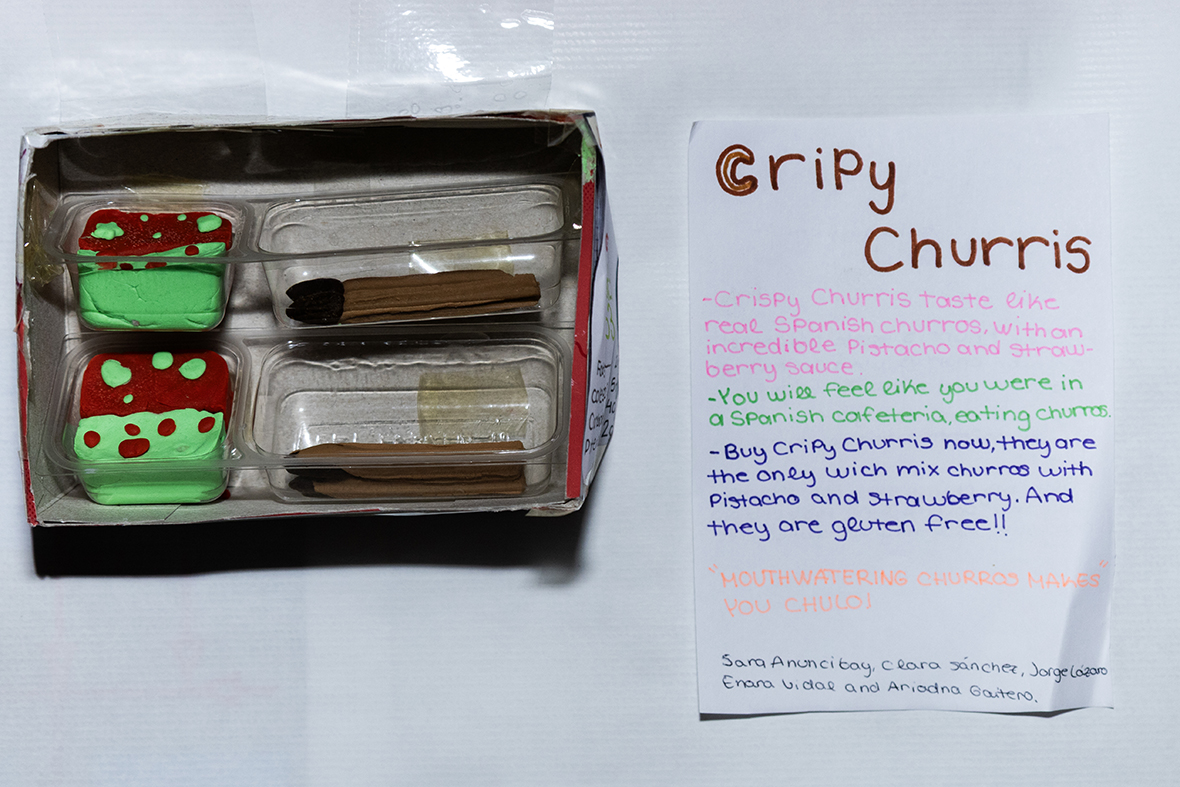 Cripy
Churris
-Crispy Churris taste like
real Spanish churros, with an
incredible Pistacho and straw-
berry sauce.
-You will feel like you were in
a Spanish cafeteria, eating churros.
-Buy Cripy Churris now, they are
the only wich mix churros with
Pistacho and strawberry. And
they are gluten free!!
"MOUTHWATERING CHURROS MAKES"
YOU CHULO!
Sara Anuncibay, Clara Sánchez, Jorge Lázaro
Enara Vidal and Ariadna Gaitero.